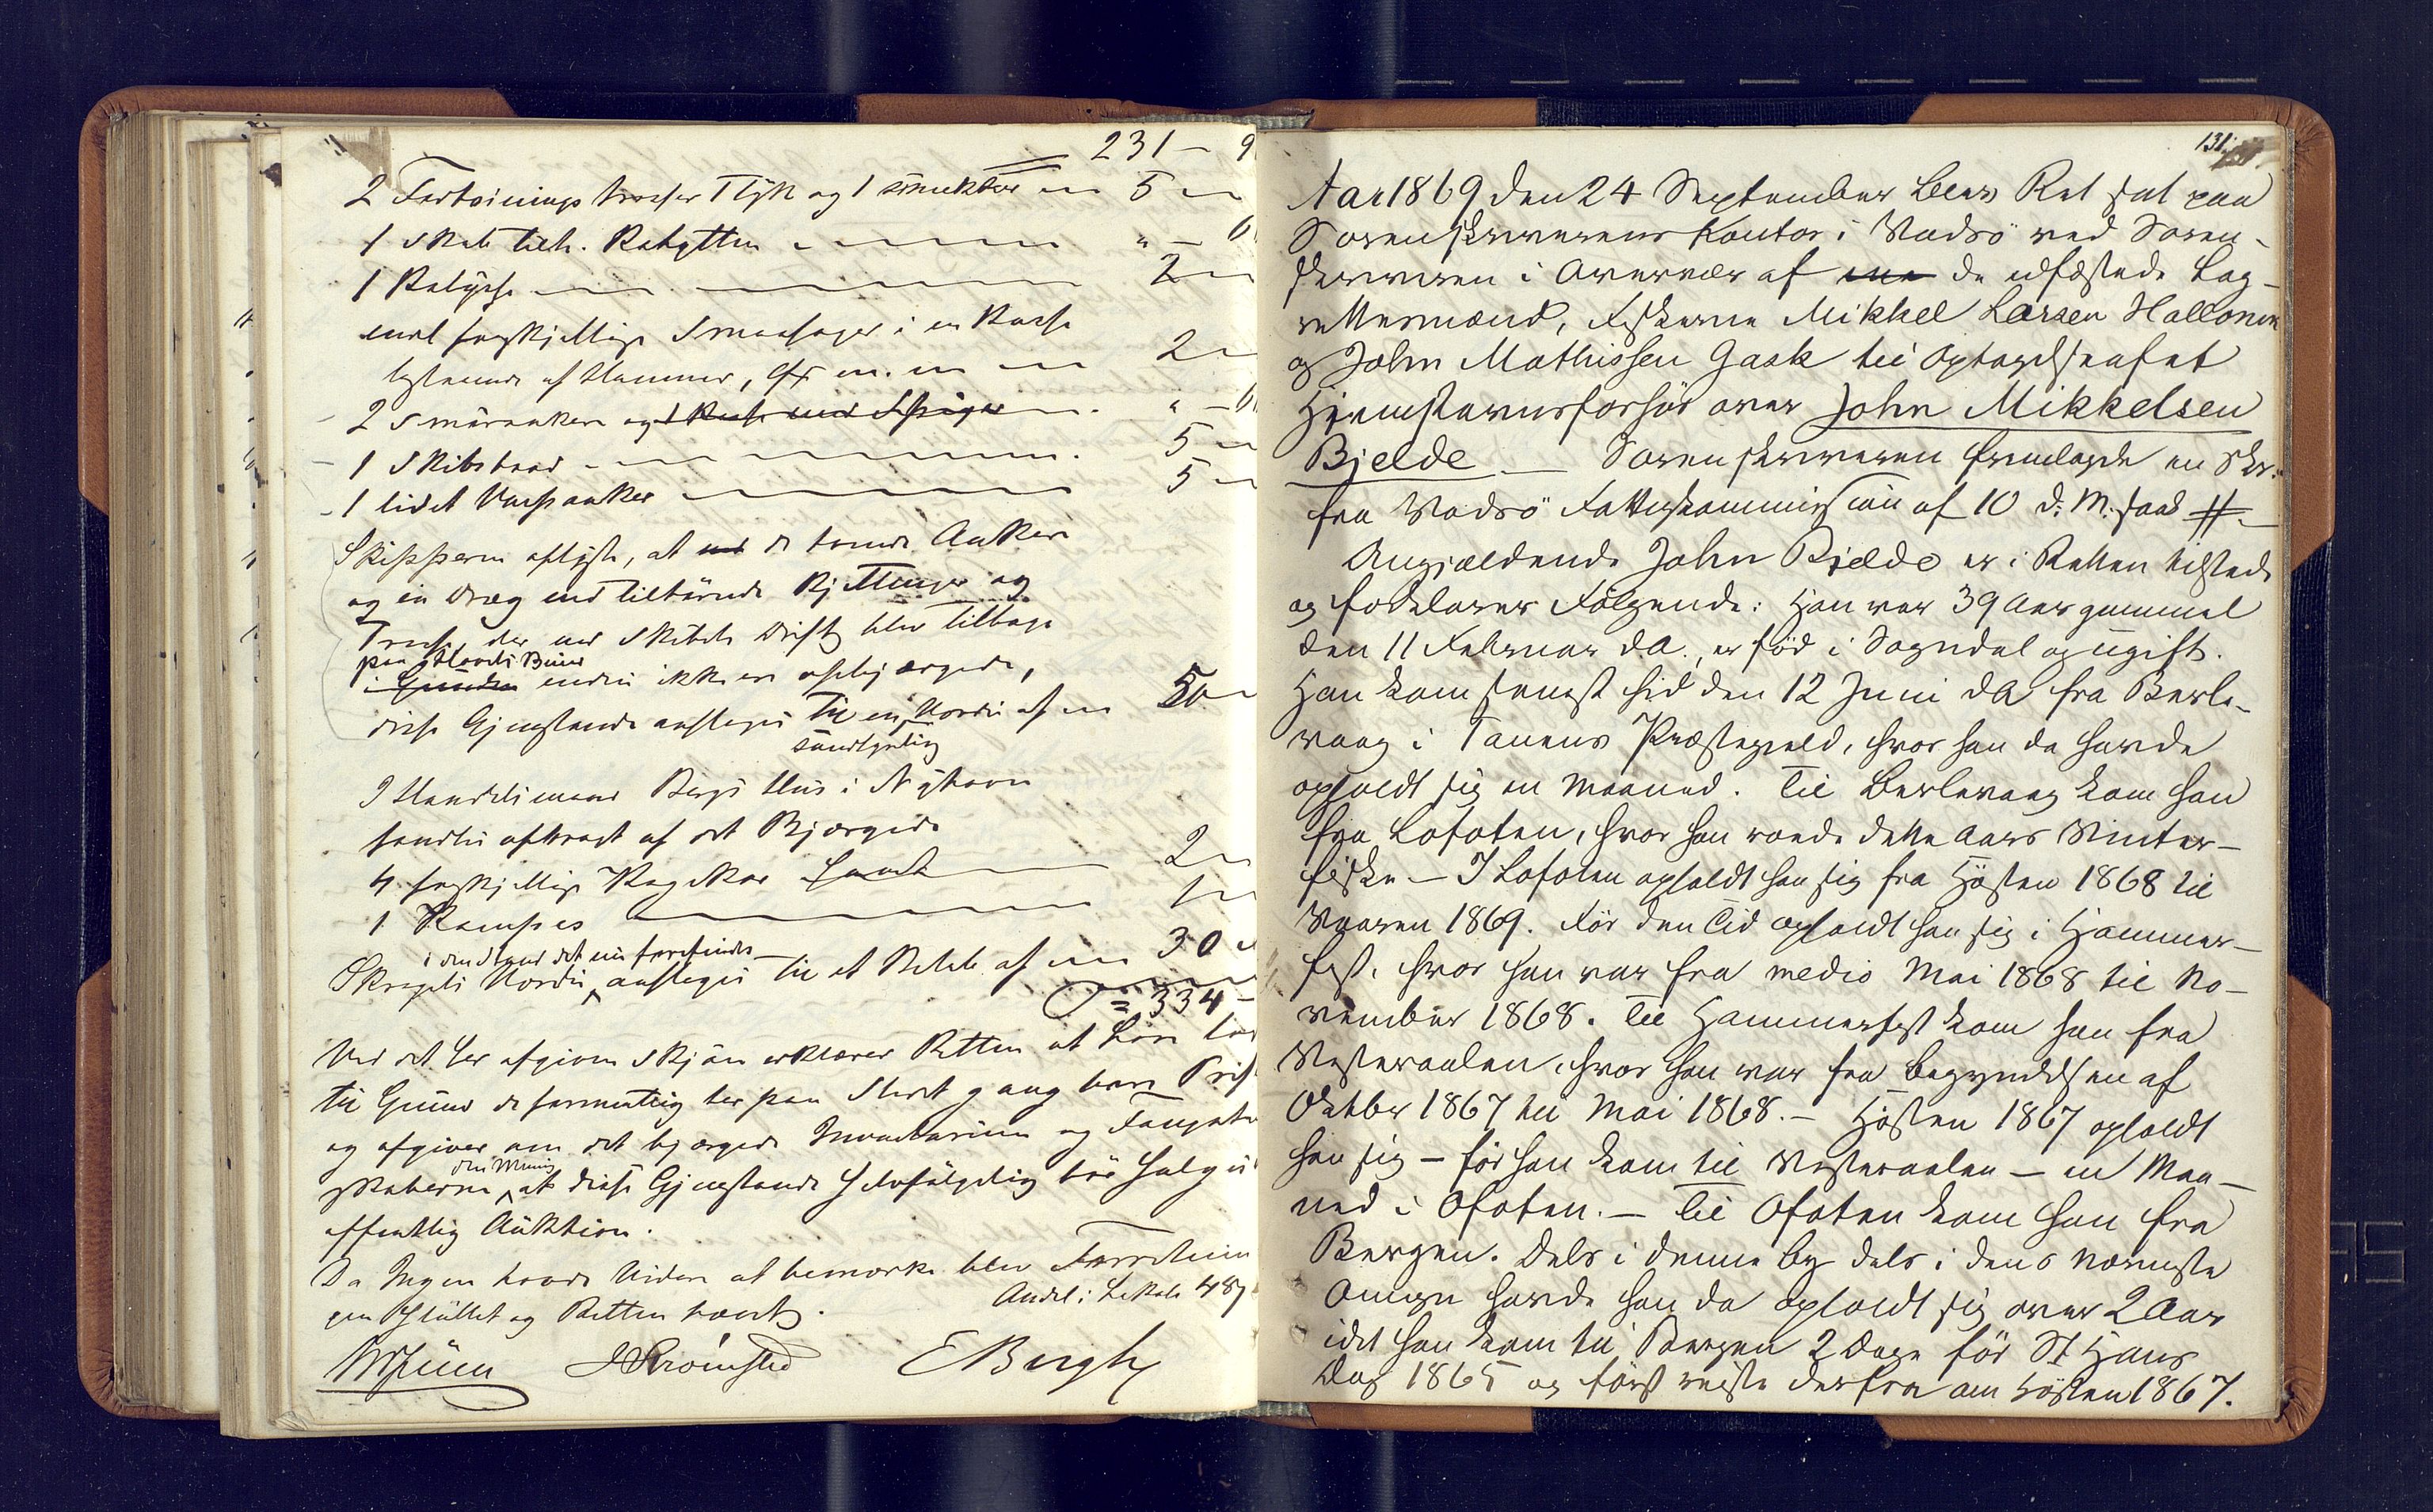 231 – 9
2 Fortøinings trosser 1 tyk og 1 smekker 5
1 Skab tilh. Kahytten " –
1 Kabysse 2
endel forskjellige Smaasager i en Kasse
bestaaende af Hammer, Øx m. m 2
2 smårankere og 1 Kasse med Spiger " –
1 Skibsbaad 5
1 lidet Varpanker 5
Skipperen oplyste, at med de tvende Ankere
og en Dræg med tilhørende Kjettinger og
Trosse, der ved Skibets Drift blev tilbage
paa Havets Bund
i Grunden endnu ikke ere opbjærgede,
disse Gjenstande ansloges til en Værdi af 50
sandsynlig
I Handelsmand Bergs Hus i Nyhavn
fandtes opbragt af det Bjærgede
4 forskjellige Kagekar 2
1 Kompas 1
i den Stand det nu forefindes
Skrogets Værdi ansloges til et Beløb af 30
= 334 –
Ved det her afgivne Skjøn erklærer Retten at
til Grund de formentlig her paa Stedet gangbare Pris
og afgiver om det bjærgede Inventarium og
den Mening
skaberne at disse Gjenstande selvfølgelig bør sælges
offentlig Auktion.
Da Ingen havde Videre at bemærke blev Forretnin
gen sluttet og Retten hævet.
E Bergh
131.
Aar 1869 den 24 September blev Ret sat paa
Sorenskriverens Kontor i Vadsö ved Soren-
skriveren i Overvær af de edfæstede Lag-
rettesmænd, Fiskerne Mikkel Larsen Hallonen
og John Mathissen Gask til Optagelse af et
Hjemstavnsforhör over John Mikkelsen
Bjelde. — Sorenskriveren fremlagde en Skr.
fra Vadsö Fattigkommission af 10 d. M. saal. #.
Angjældende John Bjelde er i Retten tilstede
og forklarer Følgende: Han var 39 Aar gammel
den 11 Februar d A., er född i Sogndal og ugift.
Han kom senest hid den 12 Juni d A fra Berle-
vaag i Tanens Præstegjeld, hvor han da havde
opholdt sig en Maaned. Til Berlevaag kom han
fra Lofoten, hvor han roede dette Aars Vinter-
fiske – I Lofoten opholdt han sig fra Hösten 1868 til
Vaaren 1869. För den Tid opholdt han sig i Hammer-
fest, hvor han var fra medio Mai 1868 til No-
vember 1868. Til Hammerfest kom han fra
Vesteraalen, hvor han var fra Begyndelsen af
Oktbr 1867 til Mai 1868. – Hösten 1867 opholdt
han sig – för han kom til Vesteraalen – en Maa-
ned i Ofoten. – Til Ofoten kom han fra
Bergen. Dels i denne By dels i dens nærmeste
Omegn havde han da opholdt sig over 2 Aar
idet han kom til Bergen 2 Dage för St Hans
Dag 1865 og först reiste derfra om Hösten 1867.